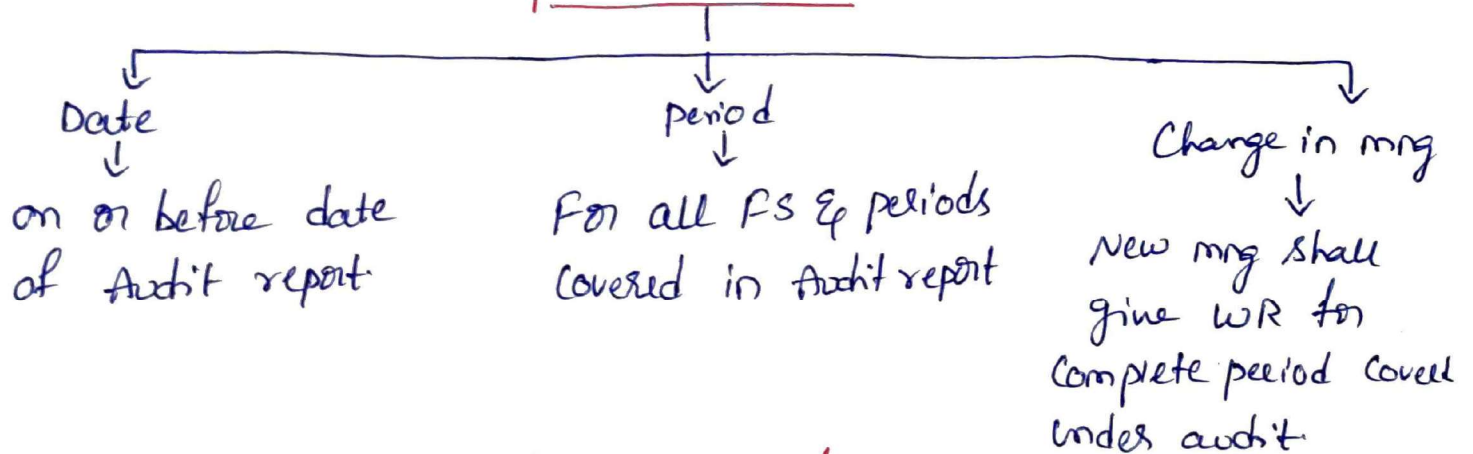 Date
on or before date
of Audit report.
period
For all FS & periods
Covered in Audit report
Change in mng
New mng shall
give WR for
Complete period coverd
under audit